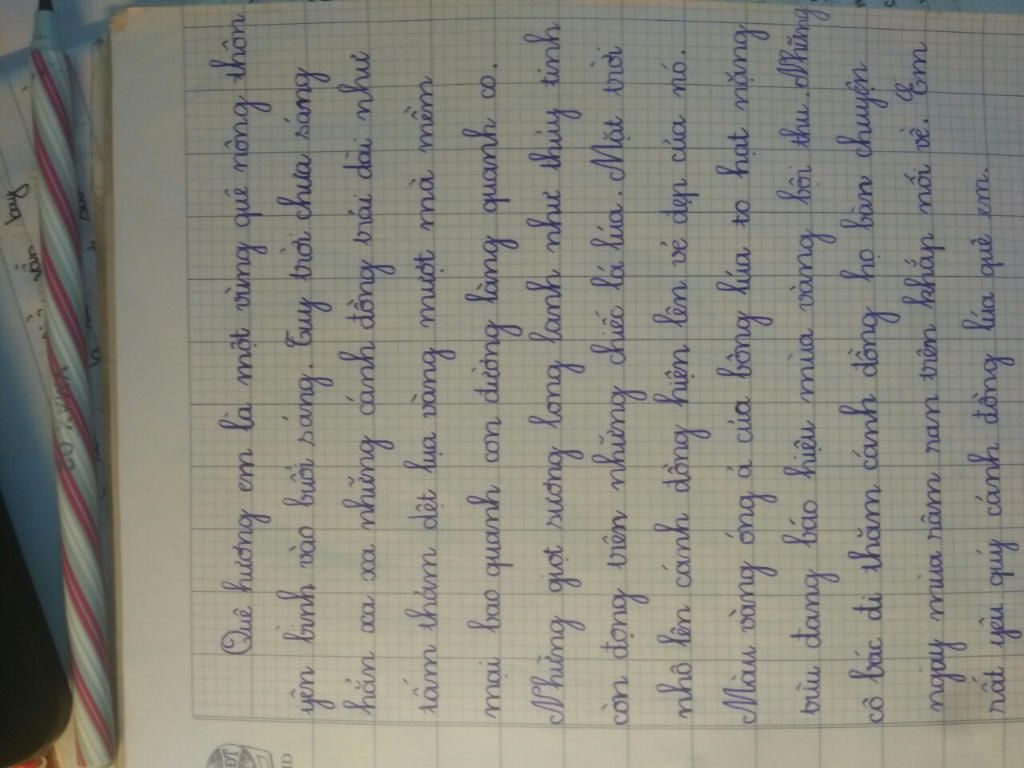 Quê hương em là một vùng quê nông thôn
yên bình vào buổi sáng. Tuy trời chưa sáng
hẳn xa xa những cánh đồng trải dài như
tấm thảm dệt lụa vàng mượt mà mềm
mại bao quanh con đường làng quanh co.
Những giọt sương long lanh như thủy tinh
còn đọng trên những chiếc lá lúa. Mặt trời
nhô lên cánh đồng hiện lên vẻ đẹp của nó.
Màu vàng óng ả của bông lúa to hạt nặng
trĩu đang báo hiệu mùa vàng bội thu. Những
cô bác đi thăm cánh đồng họ bàn chuyện
ngày mùa râm ran trên khắp nối về. Em
rất yêu quý cánh đồng lúa quê em.